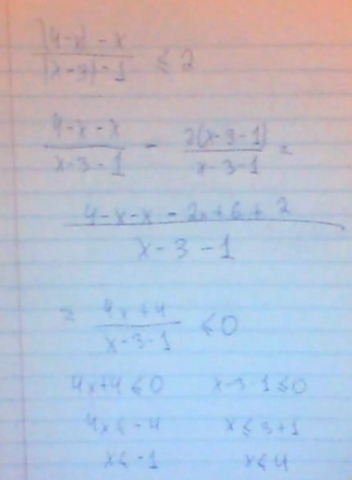 |4-x| - x
|x-3| -1 ≤ 2
4-x-x - 2(x-3-1) =
x-3-1 x-3-1
4-x-x-2x+6+2
x-3-1
= 4x+4 ≤0
x-3-1
4x+4≤0 x-3-1≤0
4x≤-4 x≤3+1
x≤-1 x≤4